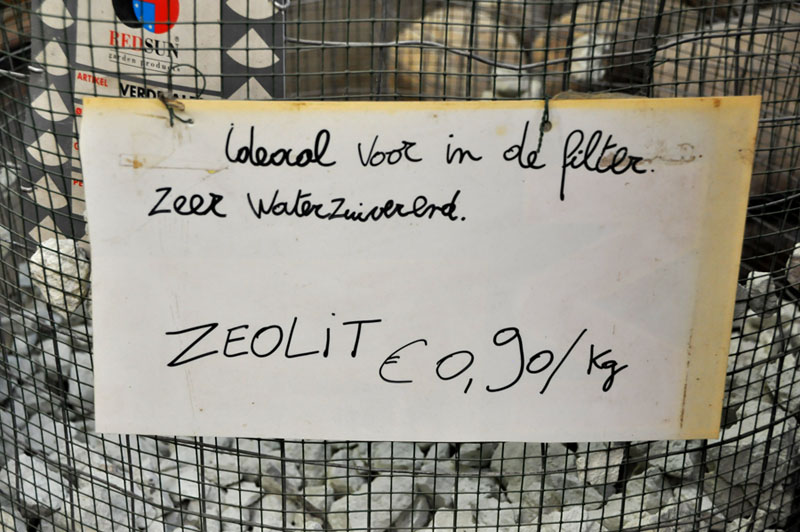 REDSUN
garden products
ARTIKEL
Ideaal voor in de filter.
Zeer waterzuiverend.
ZEOLiT € 0,90/kg